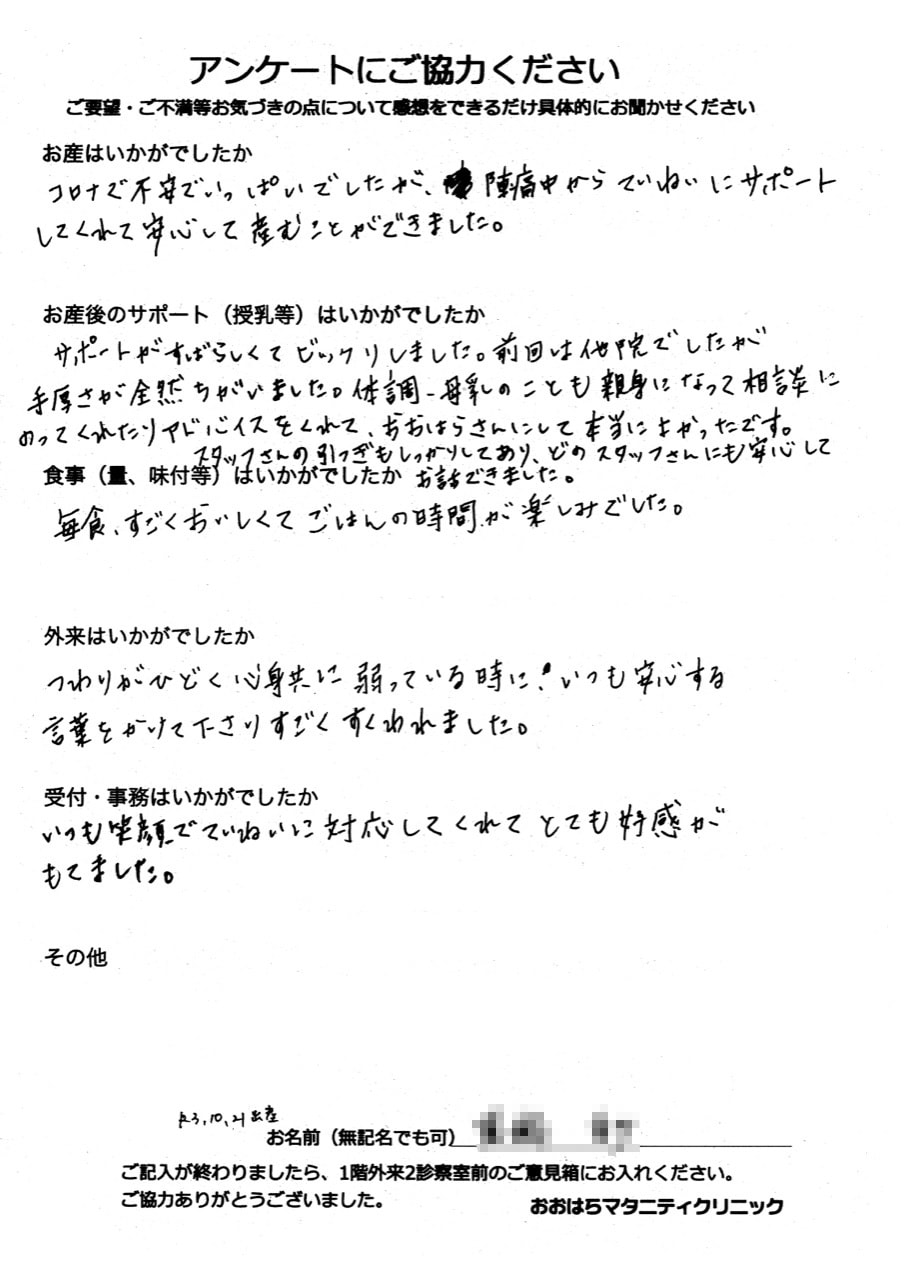 アンケートにご協力ください
ご要望・ご不満等お気づきの点について感想をできるだけ具体的にお聞かせください
お産はいかがでしたか
コロナで不安でいっぱいでしたが、陣痛中からていねいにサポート
してくれて安心して産むことができました。
お産後のサポート（授乳等）はいかがでしたか
サポートがすばらしくてビックリしました。前回は他院でしたが
手厚さが全然ちがいました。体調、母乳のことも親身になって相談に
のってくれたりアドバイスをくれて、おおはらさんにして本当によかったです。
スタッフさんの引つぎもしっかりしており、どのスタッフさんにも安心して
お話できました。
食事（量、味付等）はいかがでしたか
毎食、すごくおいしくてごはんの時間が楽しみでした。
外来はいかがでしたか
つわりがひどく心身共に弱っている時に、いつも安心する
言葉をかけて下さりすごくすくわれました。
受付・事務はいかがでしたか
いつも笑顔でていねいに対応してくれてとても好感が
もてました。
その他
R3,10,21出産
お名前（無記名でも可）
ご記入が終わりましたら、1階外来2診察室前のご意見箱にお入れください。
ご協力ありがとうございました。
おおはらマタニティクリニック